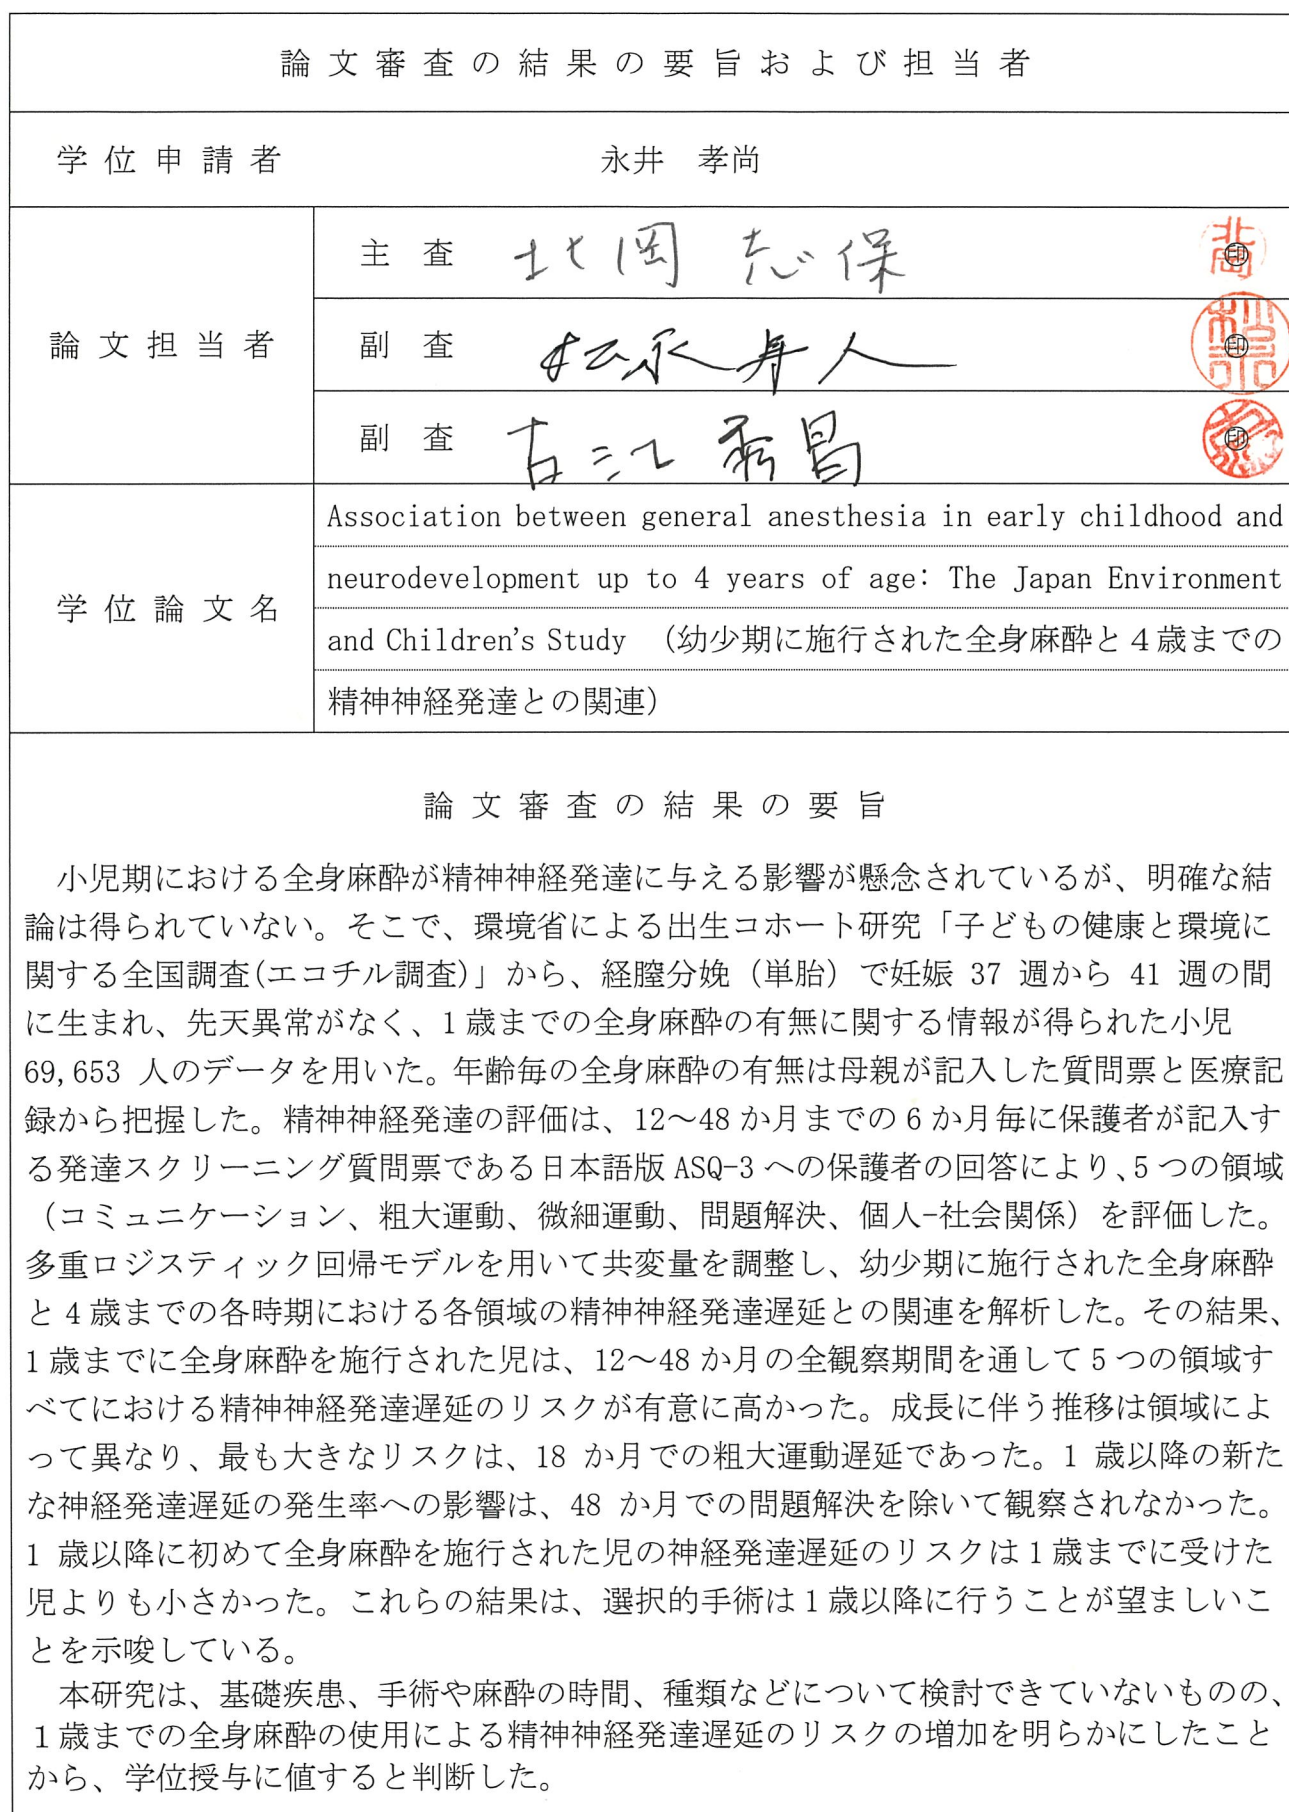 論文審査の結果の要旨および担当者
学位申請者
永井　孝尚
論文担当者
主査
北岡 志保
印
副査
松永 寿人
印
副査
古江 秀昌
印
学位論文名
Association between general anesthesia in early childhood and
neurodevelopment up to 4 years of age: The Japan Environment
and Children's Study　（幼少期に施行された全身麻酔と４歳までの
精神神経発達との関連）
論文審査の結果の要旨
小児期における全身麻酔が精神神経発達に与える影響が懸念されているが、明確な結
論は得られていない。そこで、環境省による出生コホート研究「子どもの健康と環境に
関する全国調査(エコチル調査)」から、経膣分娩（単胎）で妊娠 37 週から 41 週の間
に生まれ、先天異常がなく、1 歳までの全身麻酔の有無に関する情報が得られた小児
69,653 人のデータを用いた。年齢毎の全身麻酔の有無は母親が記入した質問票と医療記
録から把握した。精神神経発達の評価は、12～48 か月までの 6 か月毎に保護者が記入す
る発達スクリーニング質問票である日本語版 ASQ-3 への保護者の回答により、5 つの領域
（コミュニケーション、粗大運動、微細運動、問題解決、個人-社会関係）を評価した。
多重ロジスティック回帰モデルを用いて共変量を調整し、幼少期に施行された全身麻酔
と 4 歳までの各時期における各領域の精神神経発達遅延との関連を解析した。その結果、
1 歳までに全身麻酔を施行された児は、12～48 か月の全観察期間を通して 5 つの領域す
べてにおける精神神経発達遅延のリスクが有意に高かった。成長に伴う推移は領域によ
って異なり、最も大きなリスクは、18 か月での粗大運動遅延であった。1 歳以降の新た
な神経発達遅延の発生率への影響は、48 か月での問題解決を除いて観察されなかった。
1 歳以降に初めて全身麻酔を施行された児の神経発達遅延のリスクは 1 歳までに受けた
児よりも小さかった。これらの結果は、選択的手術は 1 歳以降に行うことが望ましいこ
とを示唆している。
本研究は、基礎疾患、手術や麻酔の時間、種類などについて検討できていないものの、
1 歳までの全身麻酔の使用による精神神経発達遅延のリスクの増加を明らかにしたこと
から、学位授与に値すると判断した。